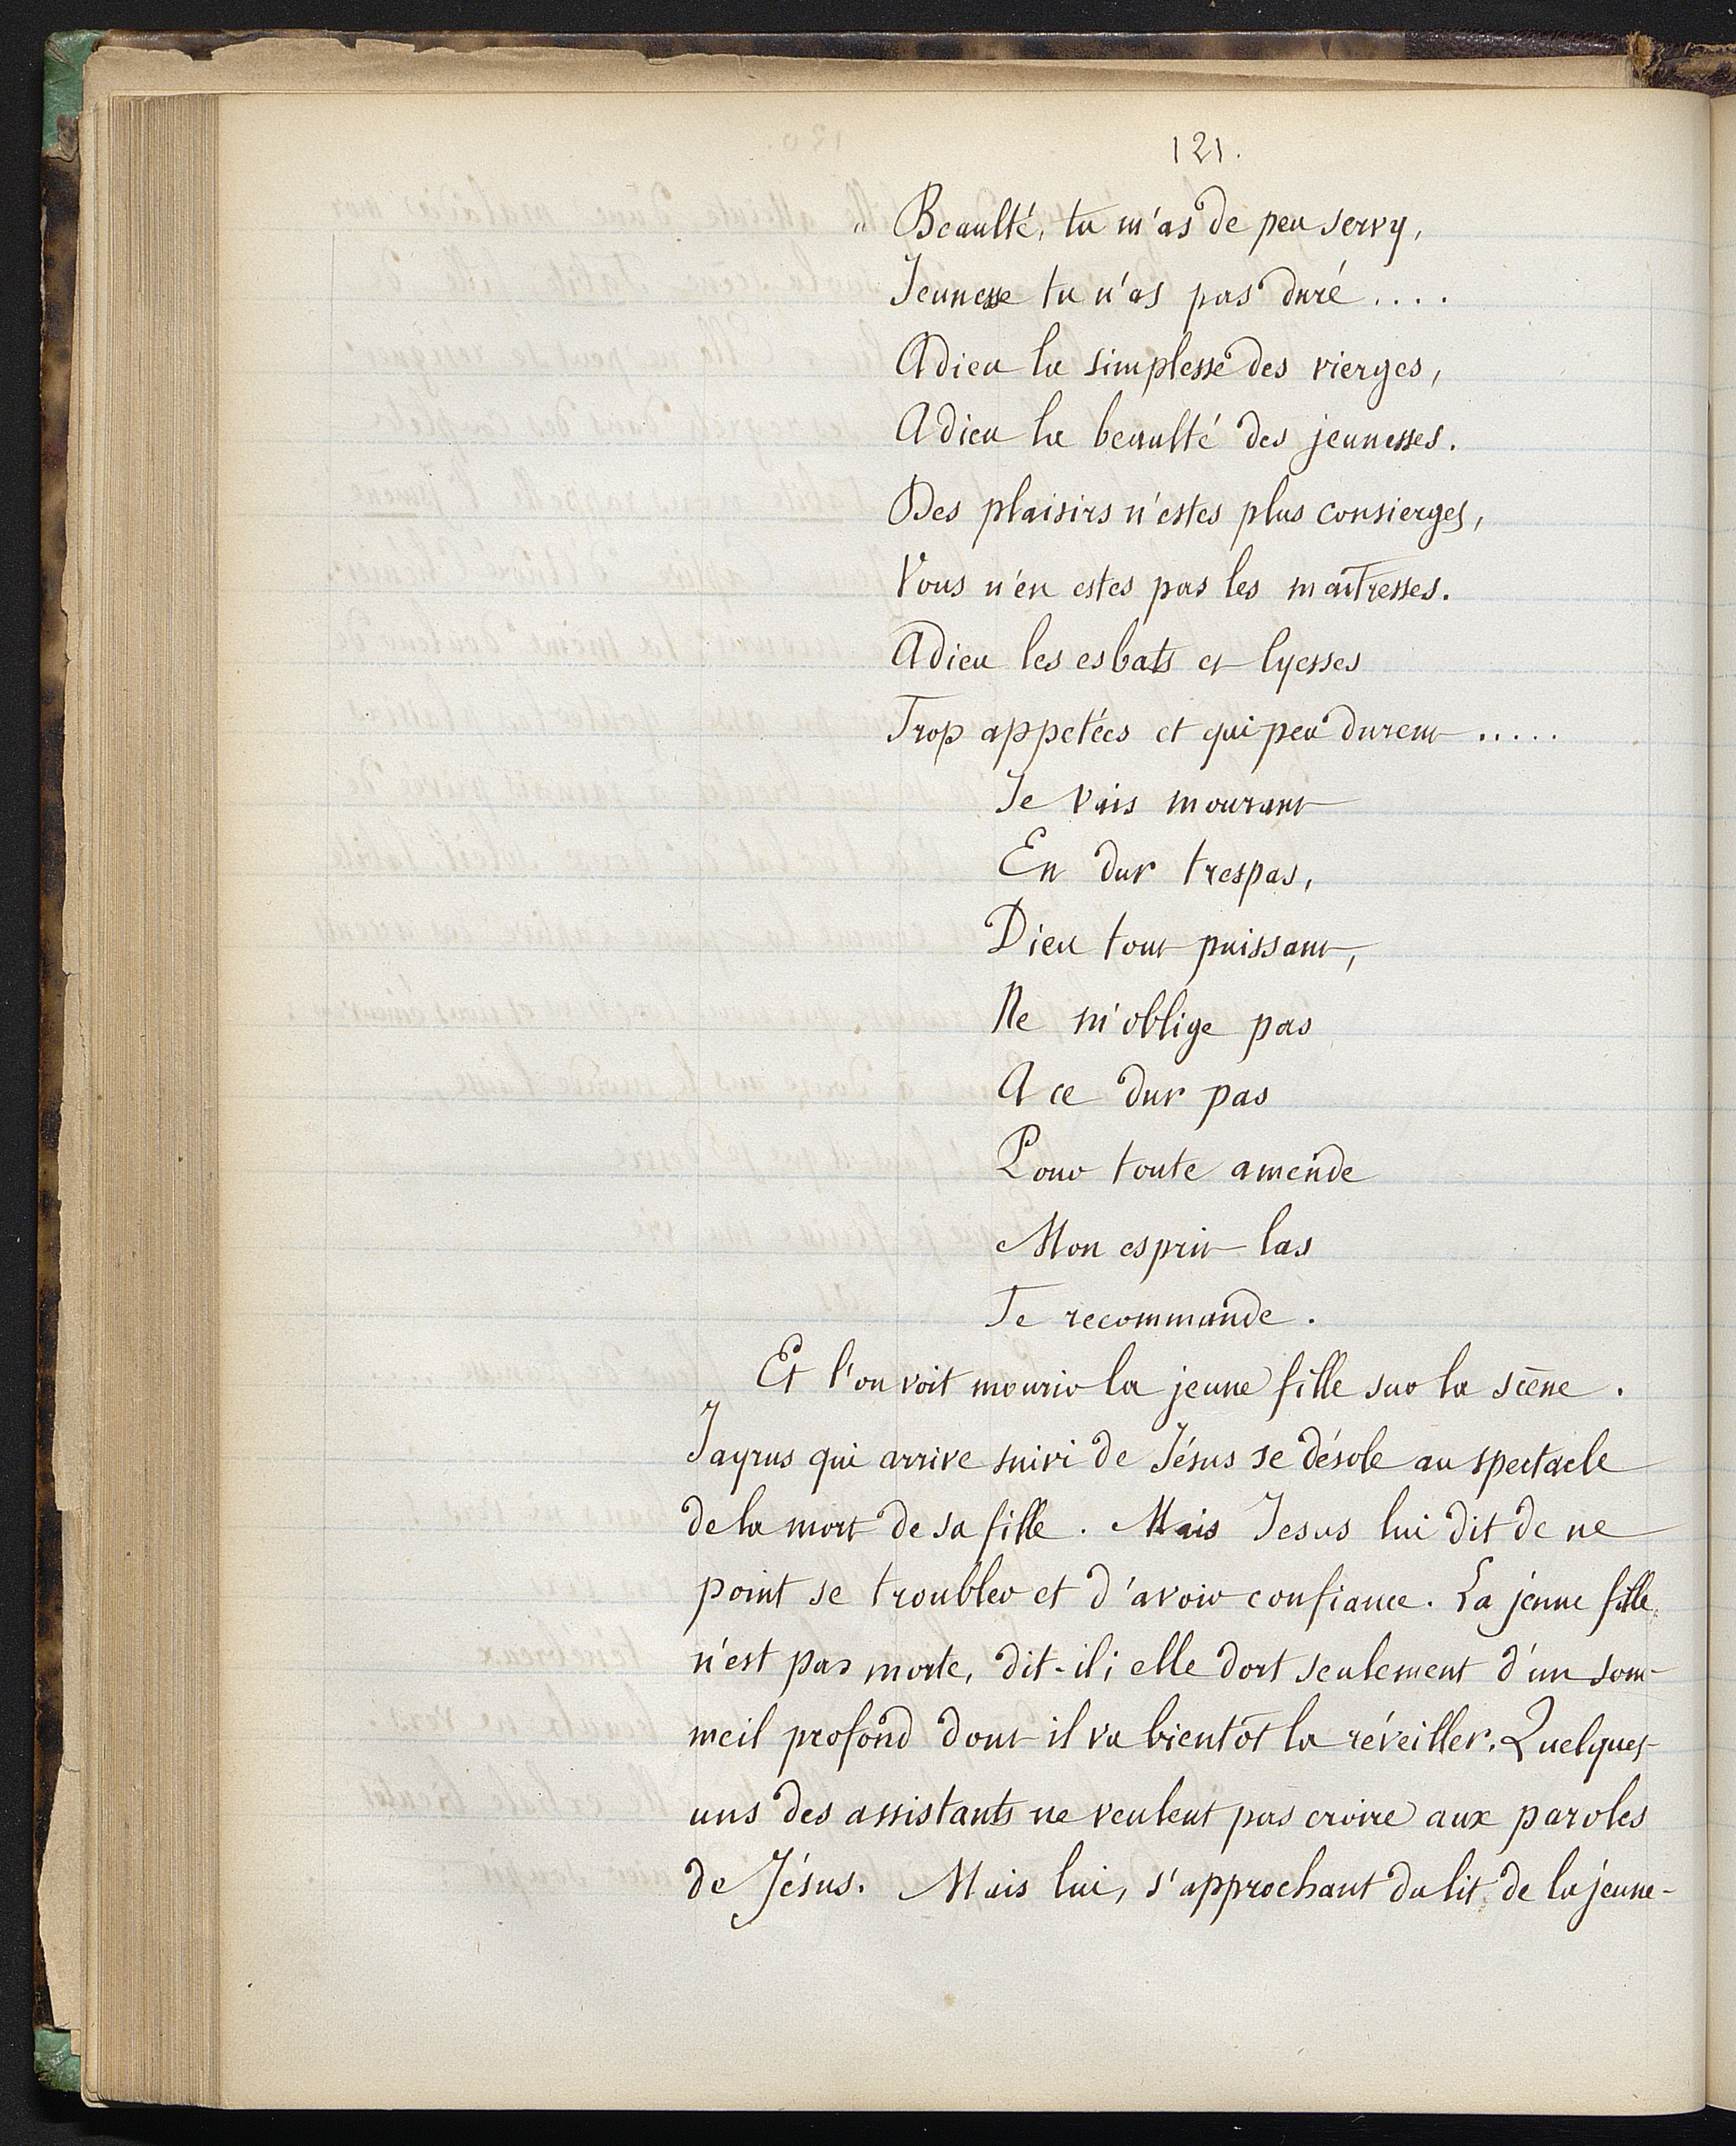 121.
" Beaulté, tu m'as de peu servy,
Jeunesse tu n'as pas duré ....
Adieu la simplesse des vierges,
Adieu la beaulté des jeunesses.
Des plaisirs n'estes plus consierges,
Vous n'en estes pas les maîtresses.
Adieu les esbats et lyesses
Trop appetées et qui peu durent .....
Je vais mourant
En dur trespas,
Dieu tout puissant,
Ne m'oblige pas
A ce dur pas
Pour toute amende
Mon esprit las
Te recommande.
Et l'on voit mourir la jeune fille sur la scène.
Jayrus qui arrive suivi de Jésus se désole au spectacle
de la mort de sa fille. Mais Jesus lui dit de ne
point se troubler et d'avoir confiance. La jeune fille
n'est pas morte, dit-il; elle dort seulement d'un som-
meil profond dont il va bientôt la réveiller. Quelques-
uns des assistants ne veulent pas croire aux paroles
de Jésus. Mais lui, s'approchant du lit de la jeune-